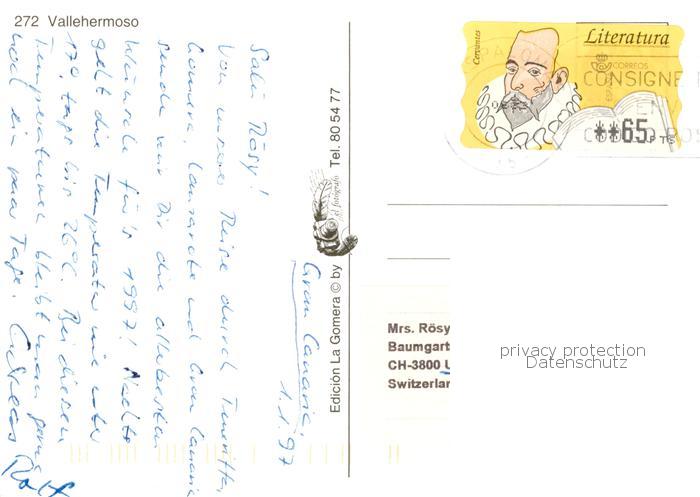 272 Vallehermoso
Gran Canaria,
1.1.97
Sali Rösy!
Von unserer Reise durch Teneriffa,
Gomera, Lanzarote und Gran Canaria
sende ich Dir die allerbesten
Wünsche für's 1997! Nachts
geht die Temperatur nie unter
17°, tags bis 26°C. Bei diesen
Temperaturen bleibt man gerne
noch ein paar Tage.
Rolf
Edición La Gomera © by el fotógrafo Tel. 80 54 77
Cervantes
Literatura
CORREOS
ESPAÑA
**65 PTS
CONSIGNE
Mrs. Rösy
Baumgart
CH-3800 U
Switzerlan
privacy protection
Datenschutz